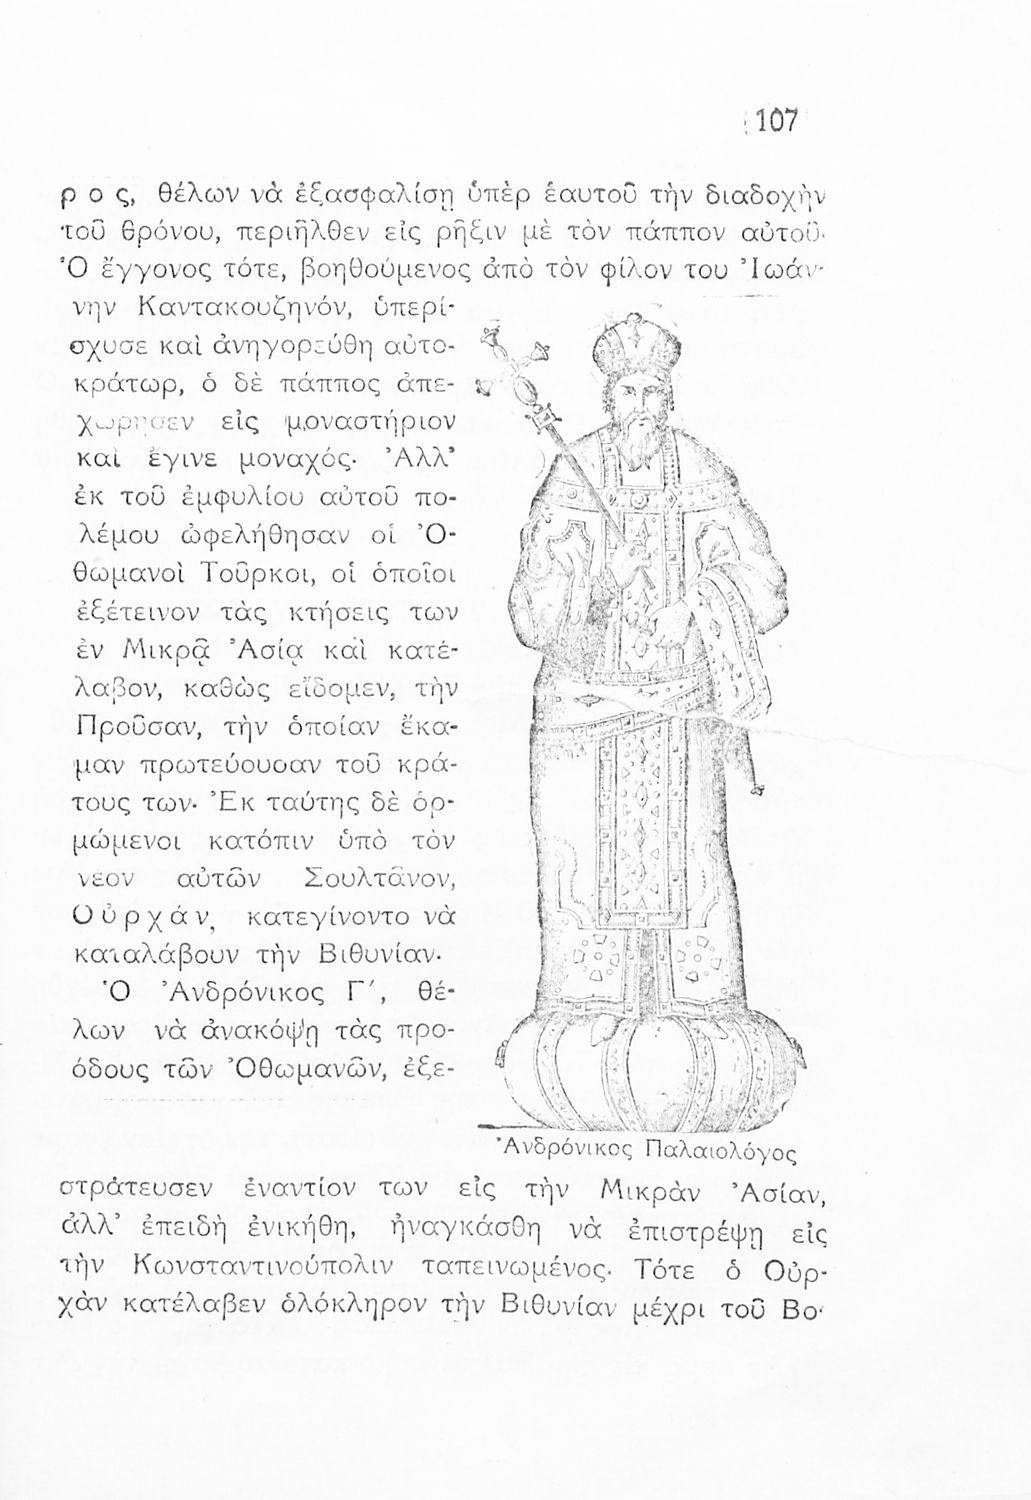 107
ρ ο ς, θέλων νὰ ἐξασφαλίσῃ ὑπὲρ ἑαυτοῦ τὴν διαδοχὴν
τοῦ θρόνου, περιῆλθεν εἰς ρῆξιν μὲ τὸν πάππον αὐτοῦ·
Ὁ ἔγγονος τότε, βοηθούμενος ἀπὸ τὸν φίλον του Ἰωάν-
νην Καντακουζηνόν, ὑπερί-
σχυσε καὶ ἀνηγορεύθη αὐτο-
κράτωρ, ὁ δὲ πάππος ἀπε-
χώρησεν εἰς μοναστήριον
καὶ ἔγινε μοναχός· Ἀλλ’
ἐκ τοῦ ἐμφυλίου αὐτοῦ πο-
λέμου ὠφελήθησαν οἱ Ὀ-
θωμανοὶ Τοῦρκοι, οἱ ὁποῖοι
ἐξέτεινον τὰς κτήσεις των
ἐν Μικρᾷ Ἀσίᾳ καὶ κατέ-
λαβον, καθὼς εἴδομεν, τὴν
Προῦσαν, τὴν ὁποίαν ἔκα-
μαν πρωτεύουσαν τοῦ κρά-
τους των· Ἐκ ταύτης δὲ ὁρ-
μώμενοι κατόπιν ὑπὸ τὸν
νεον αὐτῶν Σουλτᾶνον,
Ο ὐ ρ χ ά ν, κατεγίνοντο νὰ
καταλάβουν τὴν Βιθυνίαν·
Ὁ Ἀνδρόνικος Γ΄, θέ-
λων νὰ ἀνακόψῃ τὰς προ-
όδους τῶν Ὀθωμανῶν, ἐξε-
Ἀνδρόνικος Παλαιολόγος
στράτευσεν ἐναντίον των εἰς τὴν Μικρὰν Ἀσίαν,
ἀλλ’ ἐπειδὴ ἐνικήθη, ἠναγκάσθη νὰ ἐπιστρέψῃ εἰς
τὴν Κωνσταντινούπολιν ταπεινωμένος· Τότε ὁ Οὐρ-
χὰν κατέλαβεν ὁλόκληρον τὴν Βιθυνίαν μέχρι τοῦ Βο-